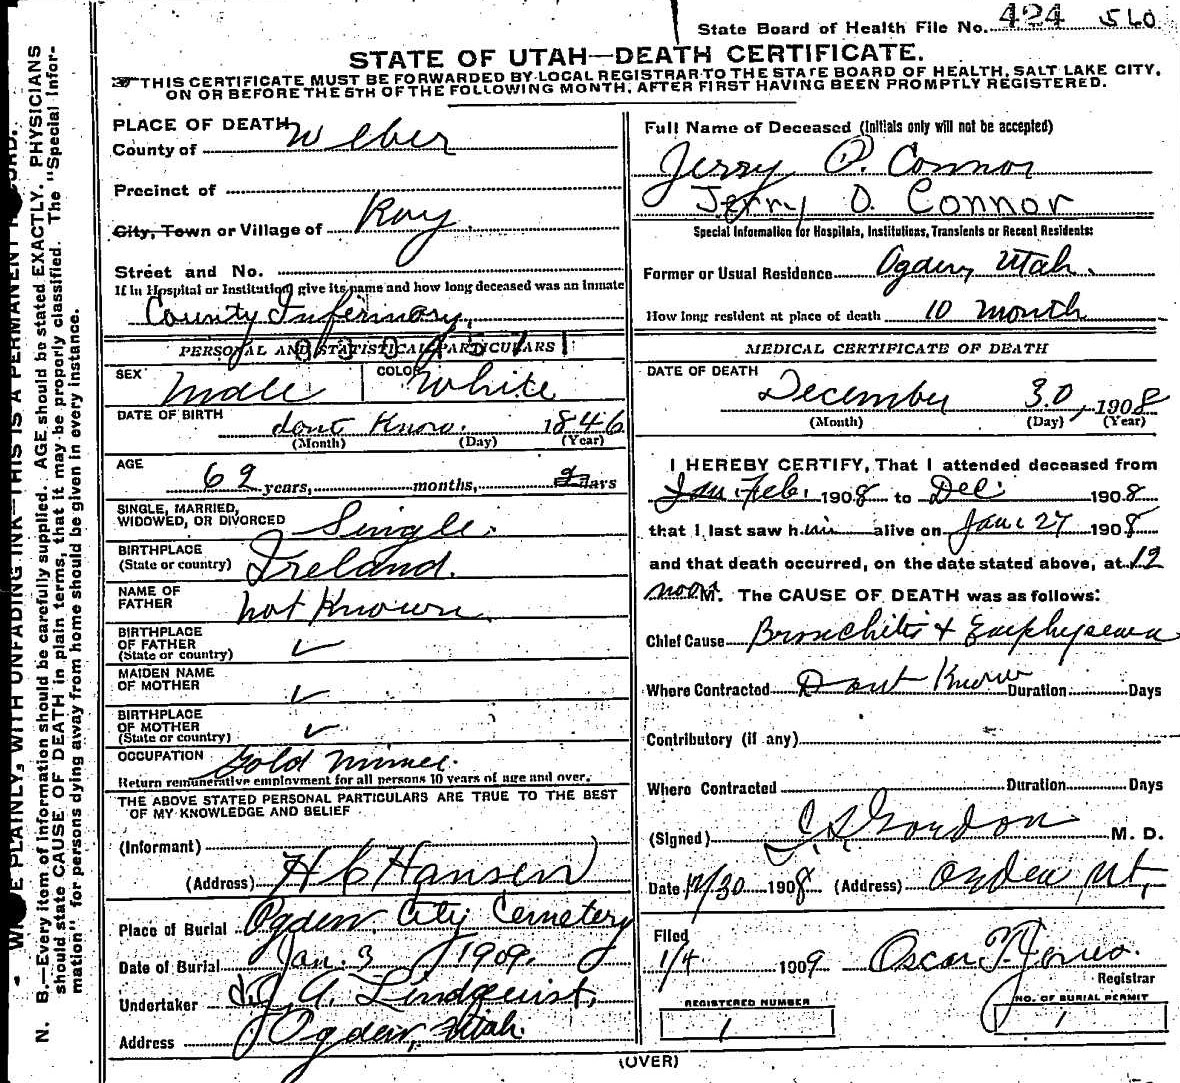 State Board of Health File No. 424 560
STATE OF UTAH—DEATH CERTIFICATE.
THIS CERTIFICATE MUST BE FORWARDED BY LOCAL REGISTRAR TO THE STATE BOARD OF HEALTH, SALT LAKE CITY,
ON OR BEFORE THE 5TH OF THE FOLLOWING MONTH, AFTER FIRST HAVING BEEN PROMPTLY REGISTERED.
PLACE OF DEATH
County of Weber
Precinct of
City, Town or Village of Roy
Street and No.
If in Hospital or Institution, give its name and how long deceased was an inmate
County Infirmary,
PERSONAL AND STATISTICAL PARTICULARS
SEX Male COLOR White
DATE OF BIRTH dont Know. 1846
(Month) (Day) (Year)
AGE 62 years, months, days
SINGLE, MARRIED,
WIDOWED, OR DIVORCED Single.
BIRTHPLACE
(State or country) Ireland.
NAME OF
FATHER not Known
BIRTHPLACE
OF FATHER
(State or country) ✓
MAIDEN NAME
OF MOTHER ✓
BIRTHPLACE
OF MOTHER
(State or country) ✓
OCCUPATION Gold Miner.
Return remunerative employment for all persons 10 years of age and over.
THE ABOVE STATED PERSONAL PARTICULARS ARE TRUE TO THE BEST
OF MY KNOWLEDGE AND BELIEF
(Informant)
(Address) H C Hansen
Place of Burial Ogden City Cemetery
Date of Burial Jan. 3 1909.
Undertaker J. A. Lindquist,
Address Ogden, Utah.
Full Name of Deceased (Initials only will not be accepted)
Jerry O. Connor
Jerry O. Connor
Special Information for Hospitals, Institutions, Transients or Recent Residents:
Former or Usual Residence Ogden, Utah.
How long resident at place of death 10 month
MEDICAL CERTIFICATE OF DEATH
DATE OF DEATH
December 30, 1908
(Month) (Day) (Year)
I HEREBY CERTIFY, That I attended deceased from
Jan. Feb. 1908 to Dec. 1908
that I last saw him alive on 27 1908
and that death occurred, on the date stated above, at 12
noon M. The CAUSE OF DEATH was as follows:
Chief Cause Bronchitis & Emphysema
Where Contracted Dont Know Duration Days
Contributory (if any)
Where Contracted Duration Days
(Signed) Gordon M. D.
Date 12/30 1908 (Address) Ogden, Ut,
Filed
1/4 1909 Oscar T. Jones.
Registrar
REGISTERED NUMBER
1
NO. OF BURIAL PERMIT
1
(OVER)
N. B.—Every item of information should be carefully supplied. AGE should be stated EXACTLY. PHYSICIANS
should state CAUSE OF DEATH in plain terms, that it may be properly classified. The "Special Infor-
mation" for persons dying away from home should be given in every instance.
PLAINLY, WITH UNFADING INK—THIS IS A PERMANENT